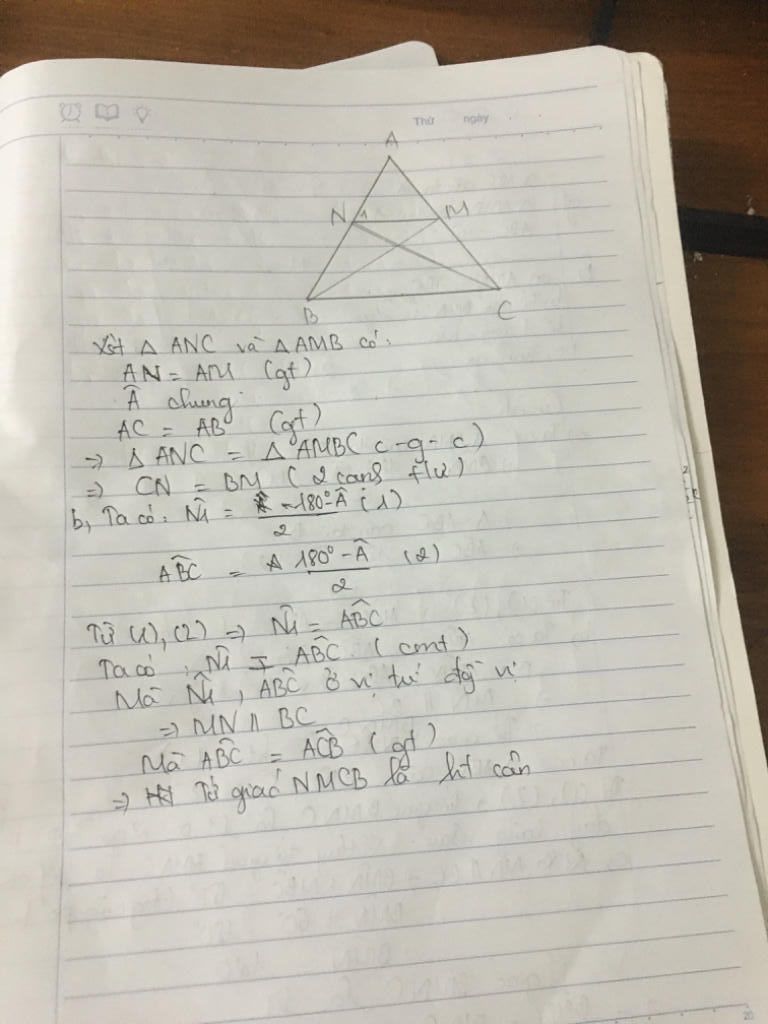 Thứ ngày
A
N 1 M
B C
Xét △ ANC và △ AMB có:
AN = AM (gt)
Â chung
AC = AB (gt)
=> △ ANC = △ AMB ( c-g-c)
=> CN = BM ( 2 cạnh t/ư)
b, Ta có: N̂1 = 180° - Â / 2 (1)
ABC̑ = 180° - Â / 2 (2)
Từ (1), (2) => N̂1 = ABC̑
Ta có: N̂1 = ABC̑ (cmt)
Mà N̂1, ABC̑ ở vị trí đồng vị
=> MN // BC
Mà ABC̑ = ACB̑ (gt)
=> Tứ giác NMCB là ht cân
20